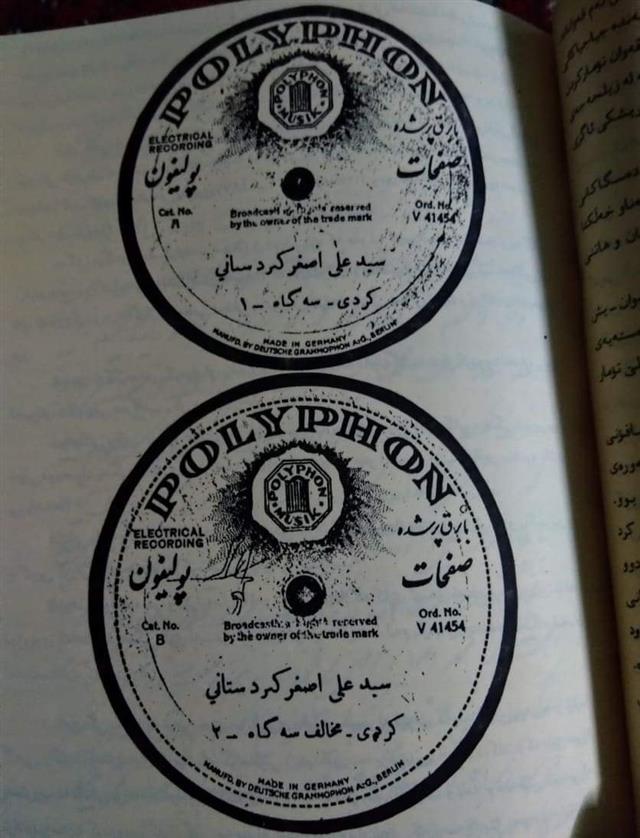 POLYPHON
POLYPHON
MUSIK
ELECTRICAL
RECORDING
بابرق پرشده
پولیفون
صفحات
Cat. No.
A
Broadcasting rights reserved
by the owner of the trade mark
Ord. No.
V 41454
سید علی اصغر کردستانی
کردی - سه گاه - ۱
MADE IN GERMANY
MANUFD. BY DEUTSCHE GRAMMOPHON A.-G., BERLIN
POLYPHON
POLYPHON
MUSIK
ELECTRICAL
RECORDING
بابرق پرشده
پولیفون
صفحات
Cat. No.
B
reserved
by the owner of the trade mark
Ord. No.
V 41454
سید علی اصغر کردستانی
کردی - مخالف سه گاه - ۲
MADE IN GERMANY
MANUFD. BY DEUTSCHE GRAMMOPHON A.-G., BERLIN